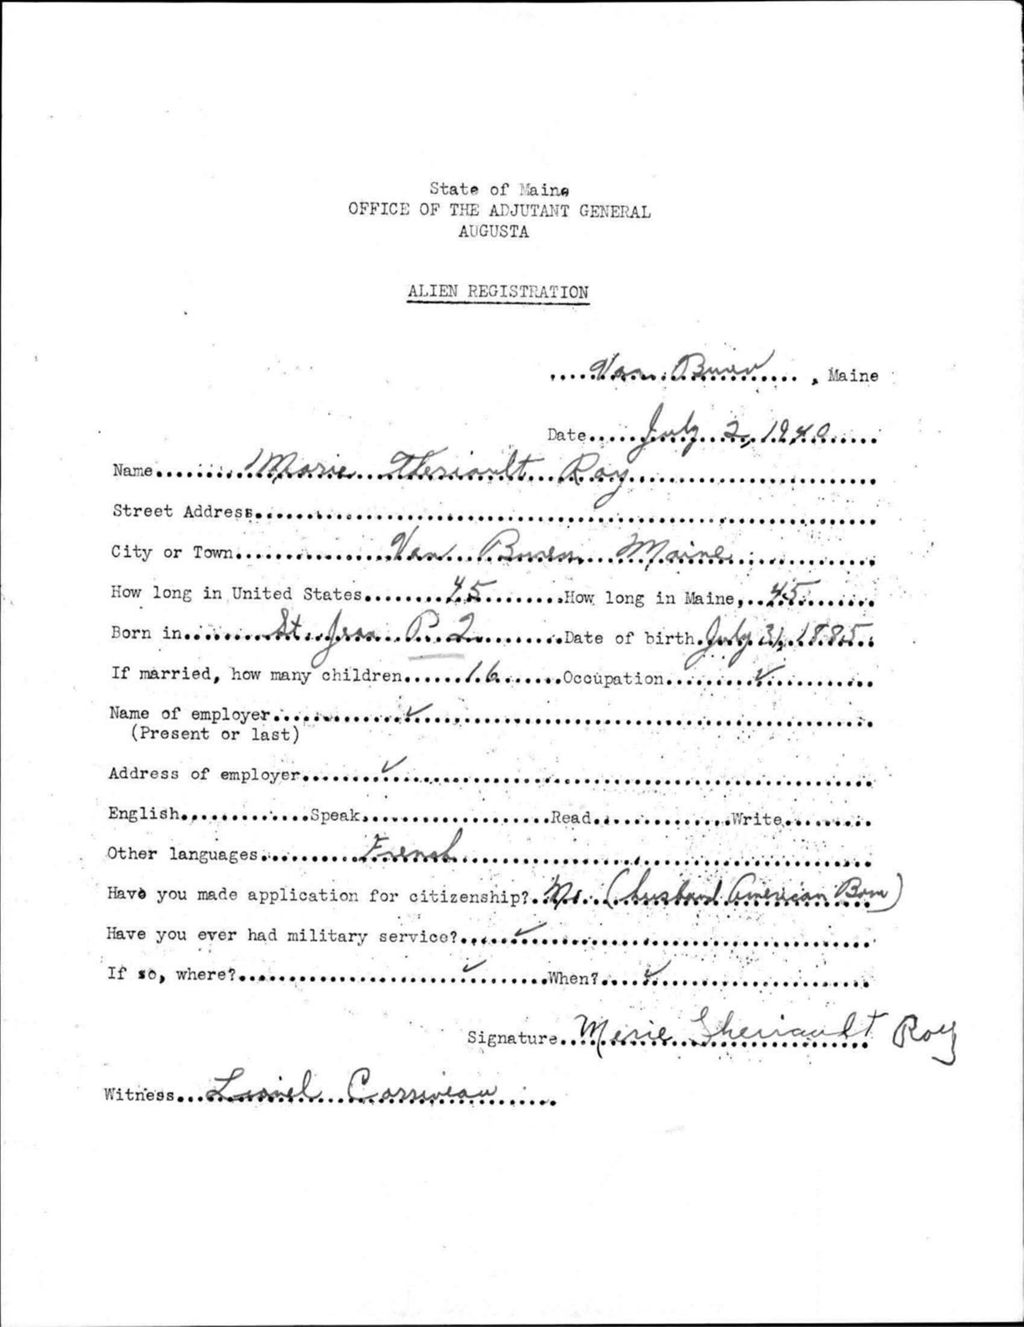 State of Maine
OFFICE OF THE ADJUTANT GENERAL
AUGUSTA
ALIEN REGISTRATION
Van Buren, Maine
Date July 2, 1940
Name Marie Theriault Roy
Street Address
City or Town Van Buren Maine
How long in United States 45 How long in Maine, 45
Born in St. Jean P. 2 Date of birth July 31, 1885
If married, how many children 16 Occupation ✓
Name of employer ✓
(Present or last)
Address of employer ✓
English Speak Read Write
Other languages French
Have you made application for citizenship? No. (husband American Born)
Have you ever had military service? ✓
If so, where? ✓ When? ✓
Signature Merie Theriault Roy
Witness Lionel Corriveau